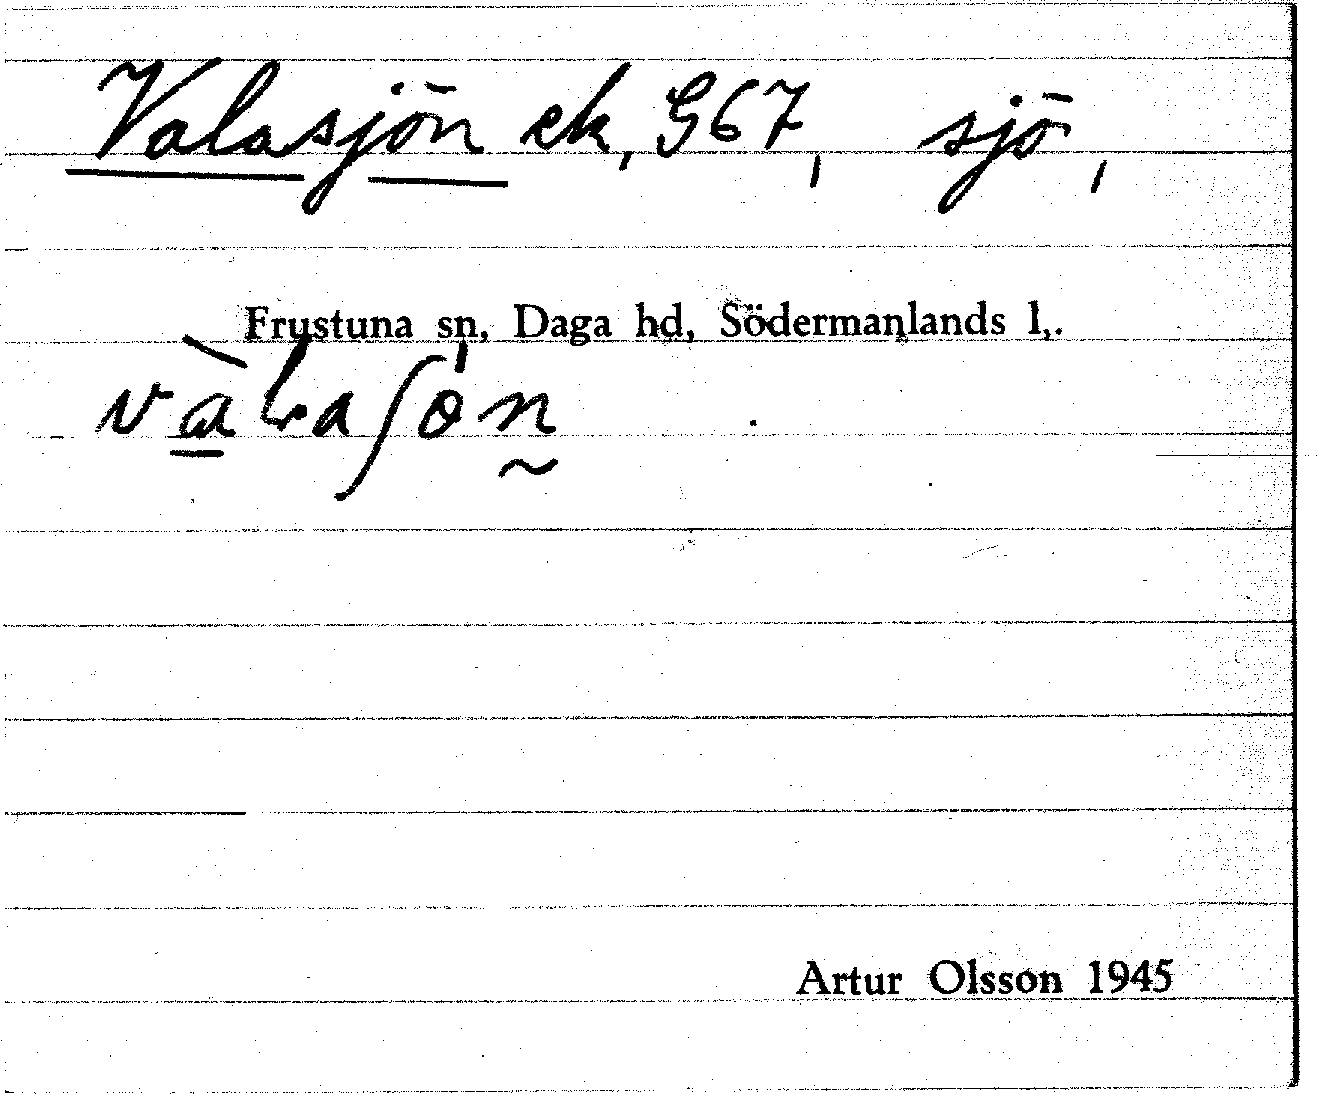 Valasjön ek, G67, sjö,
Frustuna sn, Daga hd, Södermanlands l,.
Artur Olsson 1945